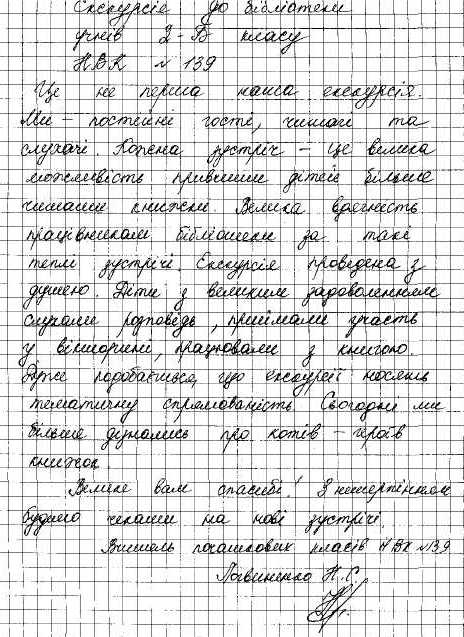 Екскурсія до бібліотеки
учнів 2-В класу
НВК № 139
Це не перша наша екскурсія.
Ми – постійні гості, читачі та
слухачі. Кожена зустріч – це велика
можливість привчити дітей більше
читати книжки. Велика вдячність
працівникам бібліотеки за такі
теплі зустрічі. Екскурсія проведена з
душею. Діти з великим задоволенням
слухали розповідь, приймали участь
у вікторині, працювали з книгою.
Дуже подобається, що екскурсії носять
тематичну спрямованість. Сьогодні ми
більше дізнались про котів – героїв
книжок.
Велике вам спасибі! З нетерпінням
будемо чекати на нові зустрічі.
Вчитель початкових класів НВК №139
Логвиненко Н.С.